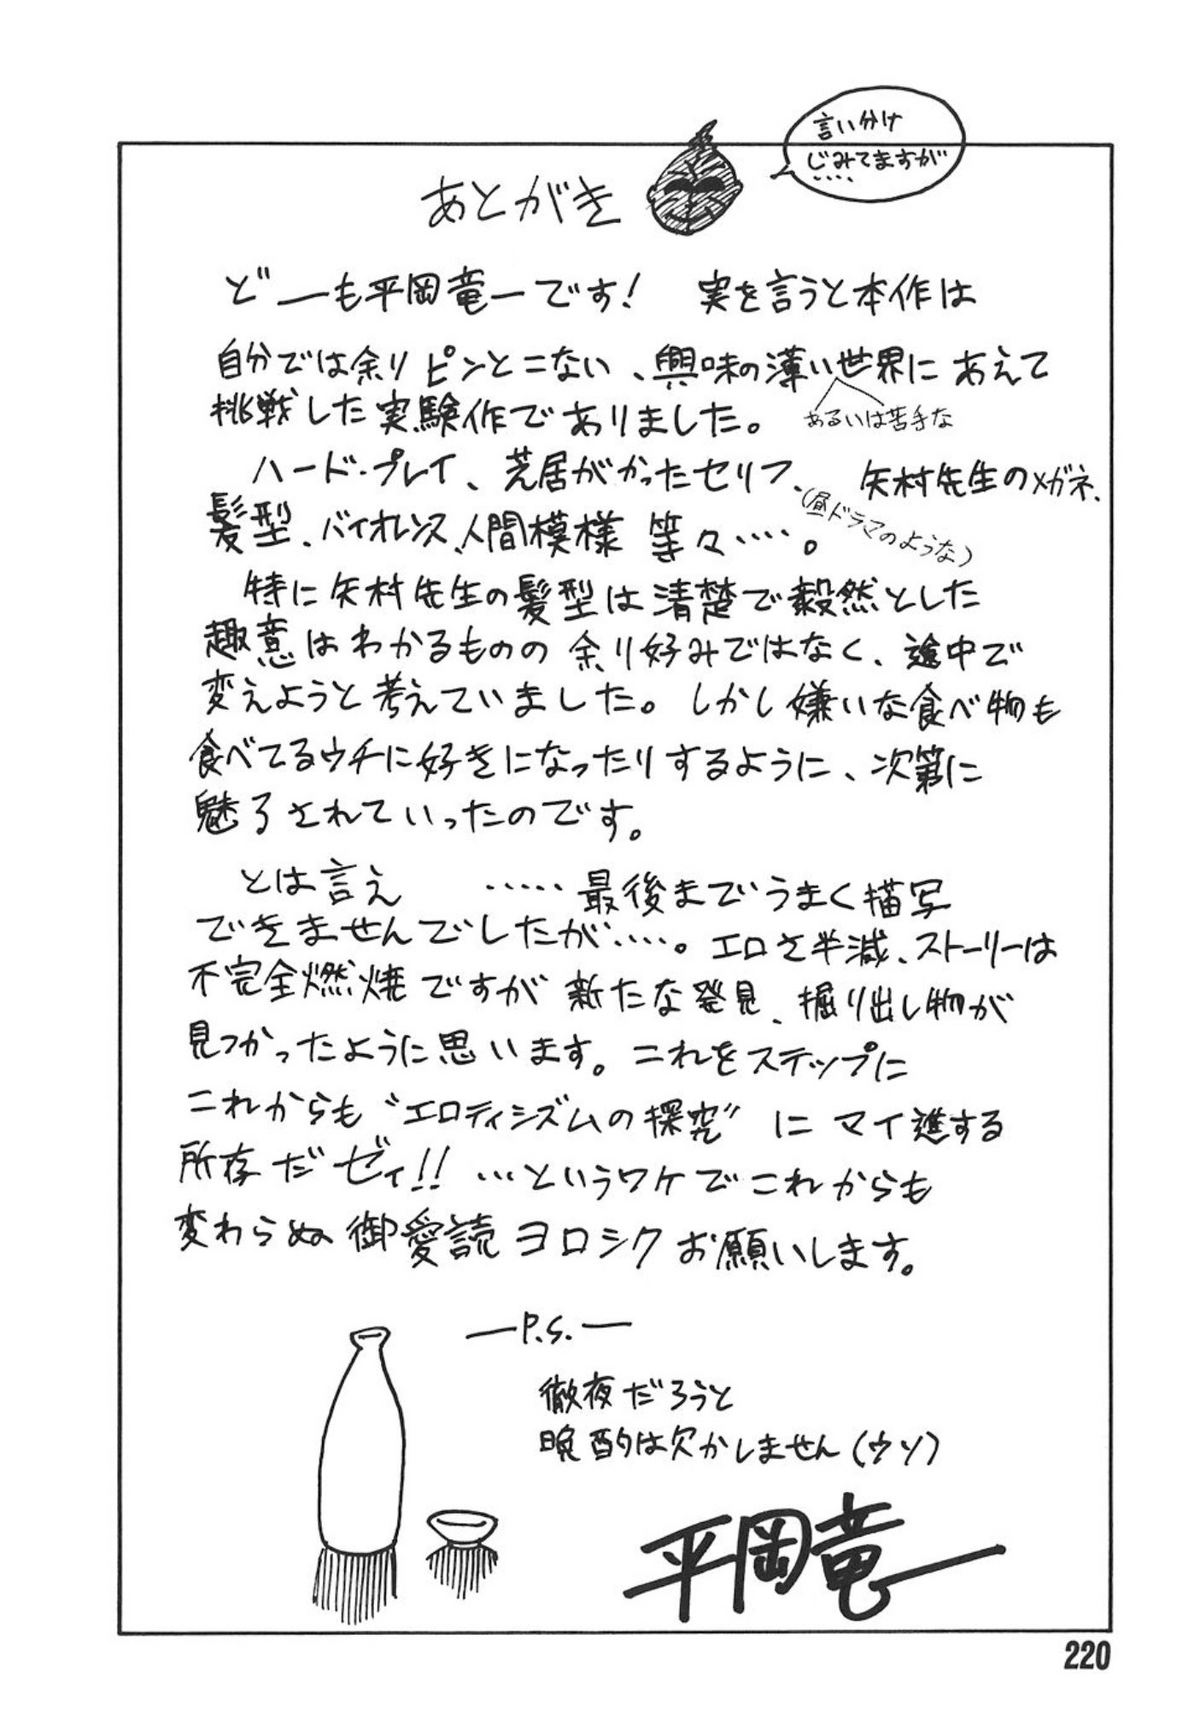 言い分け
じみてますが
‥‥
あとがき
どーも平岡竜一です! 実を言うと本作は
自分では余りピンとこない、興味の薄い世界にあえて
あるいは苦手な
挑戦した実験作でありました。
ハード・プレイ、芝居がかったセリフ、矢村先生のメガネ、
(昼ドラマのような)
髪型、バイオレンス、人間模様 等々‥‥。
特に矢村先生の髪型は清楚で毅然とした
趣意はわかるものの 余り好みではなく、途中で
変えようと考えていました。しかし嫌いな食べ物も
食べてるウチに好きになったりするように、次第に
魅るされていったのです。
とは言え ‥‥‥最後までうまく描写
できませんでしたが‥‥。エロさ半減、ストーリーは
不完全燃焼ですが 新たな発見、掘り出し物が
見つかったように思います。これをステップに
これからも“エロティシズムの探究”にマイ進する
所存だゼィ!! …というワケでこれからも
変わらぬ御愛読ヨロシクお願いします。
―P.S.―
徹夜だろうと
晩酌は欠かしません(ウソ)
平岡竜一
220